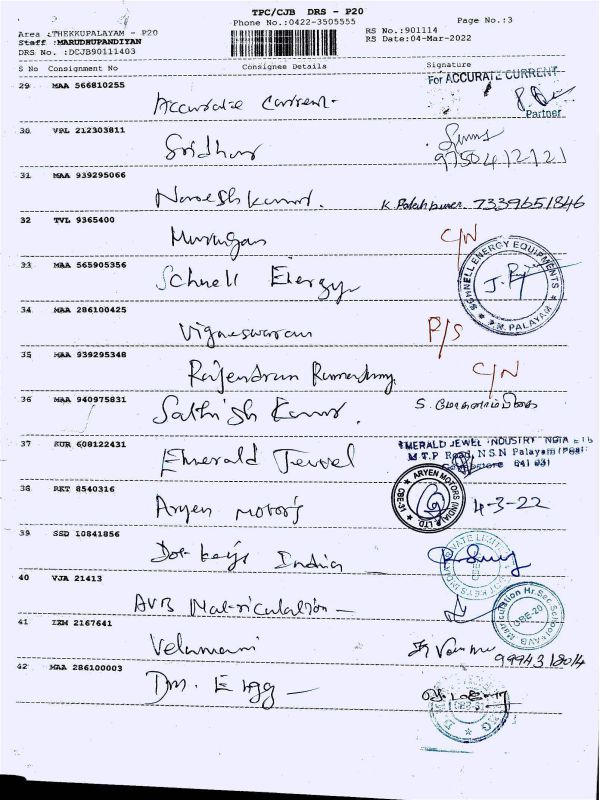 TPC/CJB DRS - P20
Phone No.:0422-3505555
Page No.:3
Area :THEKKUPALAYAM - P20
Staff :MARUDHUPANDIYAN
DRS No. :DCJB90111403
RS No.:901114
RS Date:04-Mar-2022
S No Consignment No Consignee Details Signature
29 MAA 566810255 Accurate Current- For ACCURATE CURRENT
Partner
30 VPL 212303811 Sridhar
9750412121
31 MAA 939295066 Naresh kumar. 7339651846
32 TVL 9365400 Murugan C/N
33 MAA 565905356 Schnell Energy SCHNELL ENERGY EQUIPMENTS P.N. PALAYAM
34 MAA 286100425 Vigneswaran P/S
35 MAA 939295348 Rajendran C/N
36 MAA 940975831 Sathish Kumar.
37 KUR 608122431 Emerald Jewel EMERALD JEWEL INDUSTRY INDIA LTD
M.T.P Road, N.S.N Palayam (Post)
Coimbatore 641 031
38 RKT 8540316 Aryen Motors ARYEN MOTORS INDIA (P) LTD. CBE-31 4-3-22
39 SSD 10841856 India
40 VJA 21413 AVB Matriculation - AVB Matriculation Hr.Sec School CBE-20
41 IXM 2167641 Velumani
9994318014
42 MAA 286100003 Dm. Engg -